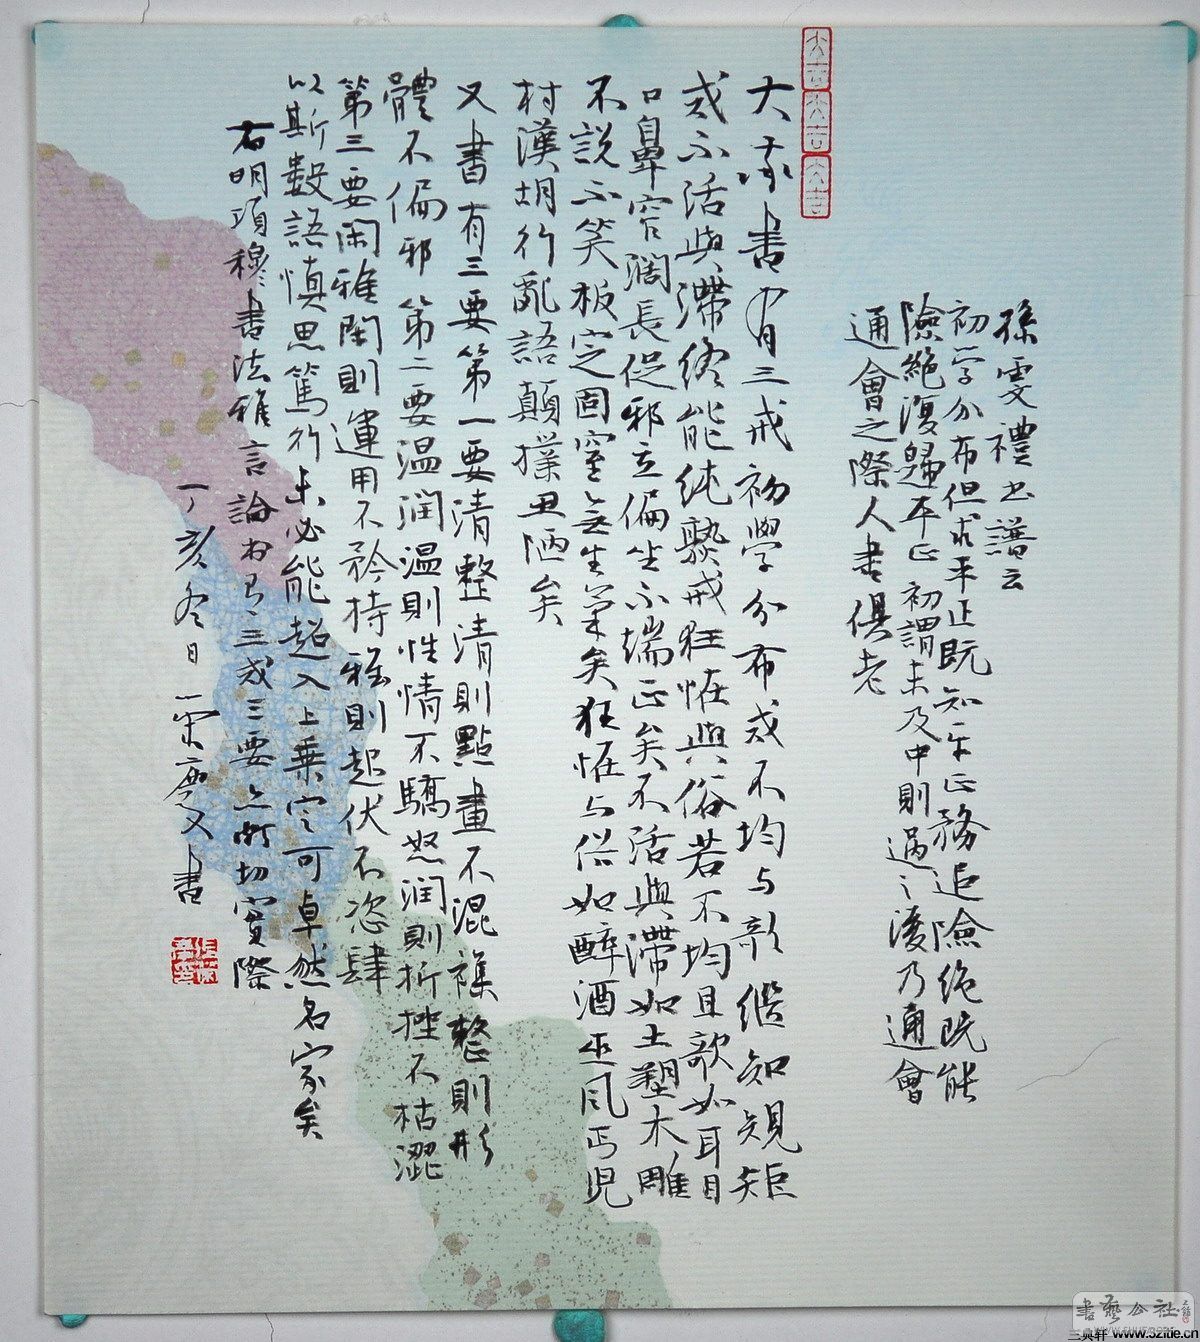 孫虔禮書譜云
初學分布但求平正既知平正務追險絶既能
險絶復歸平正初謂未及中則過之後乃通會
通會之際人書俱老
大凡書有三戒初學分布戒不均与欹繼知規矩
戒不活與滯終能純熟戒狂怪與俗若不均且欹如耳目
口鼻窄濶長促邪立偏坐不端正矣不活與滯如土塑木雕
不說不笑板定固窒無生氣矣狂怪与俗如醉酒巫风丐児
村漢胡行亂語顛撲丑陋矣
又書有三要第一要清整清則點畫不混襍整則形
體不偏邪第二要温润温則性情不驕怒润則折挫不枯澀
第三要閑雅閑則運用不矜持雅則起伏不恣肆
以斯數語慎思篤行未必能超入上乘定可卓然名家矣
右明項穆書法雅言論書之三戒三要亦所切實際
丁亥冬日 慶又書
大吉大吉大吉
書藝公社
三真轩 www.32xue.cn